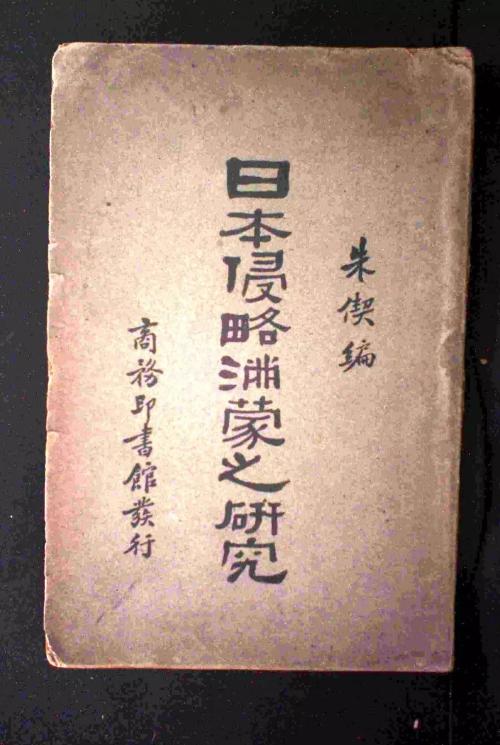 朱偰編
日本侵略満蒙之研究
商務印書館發行